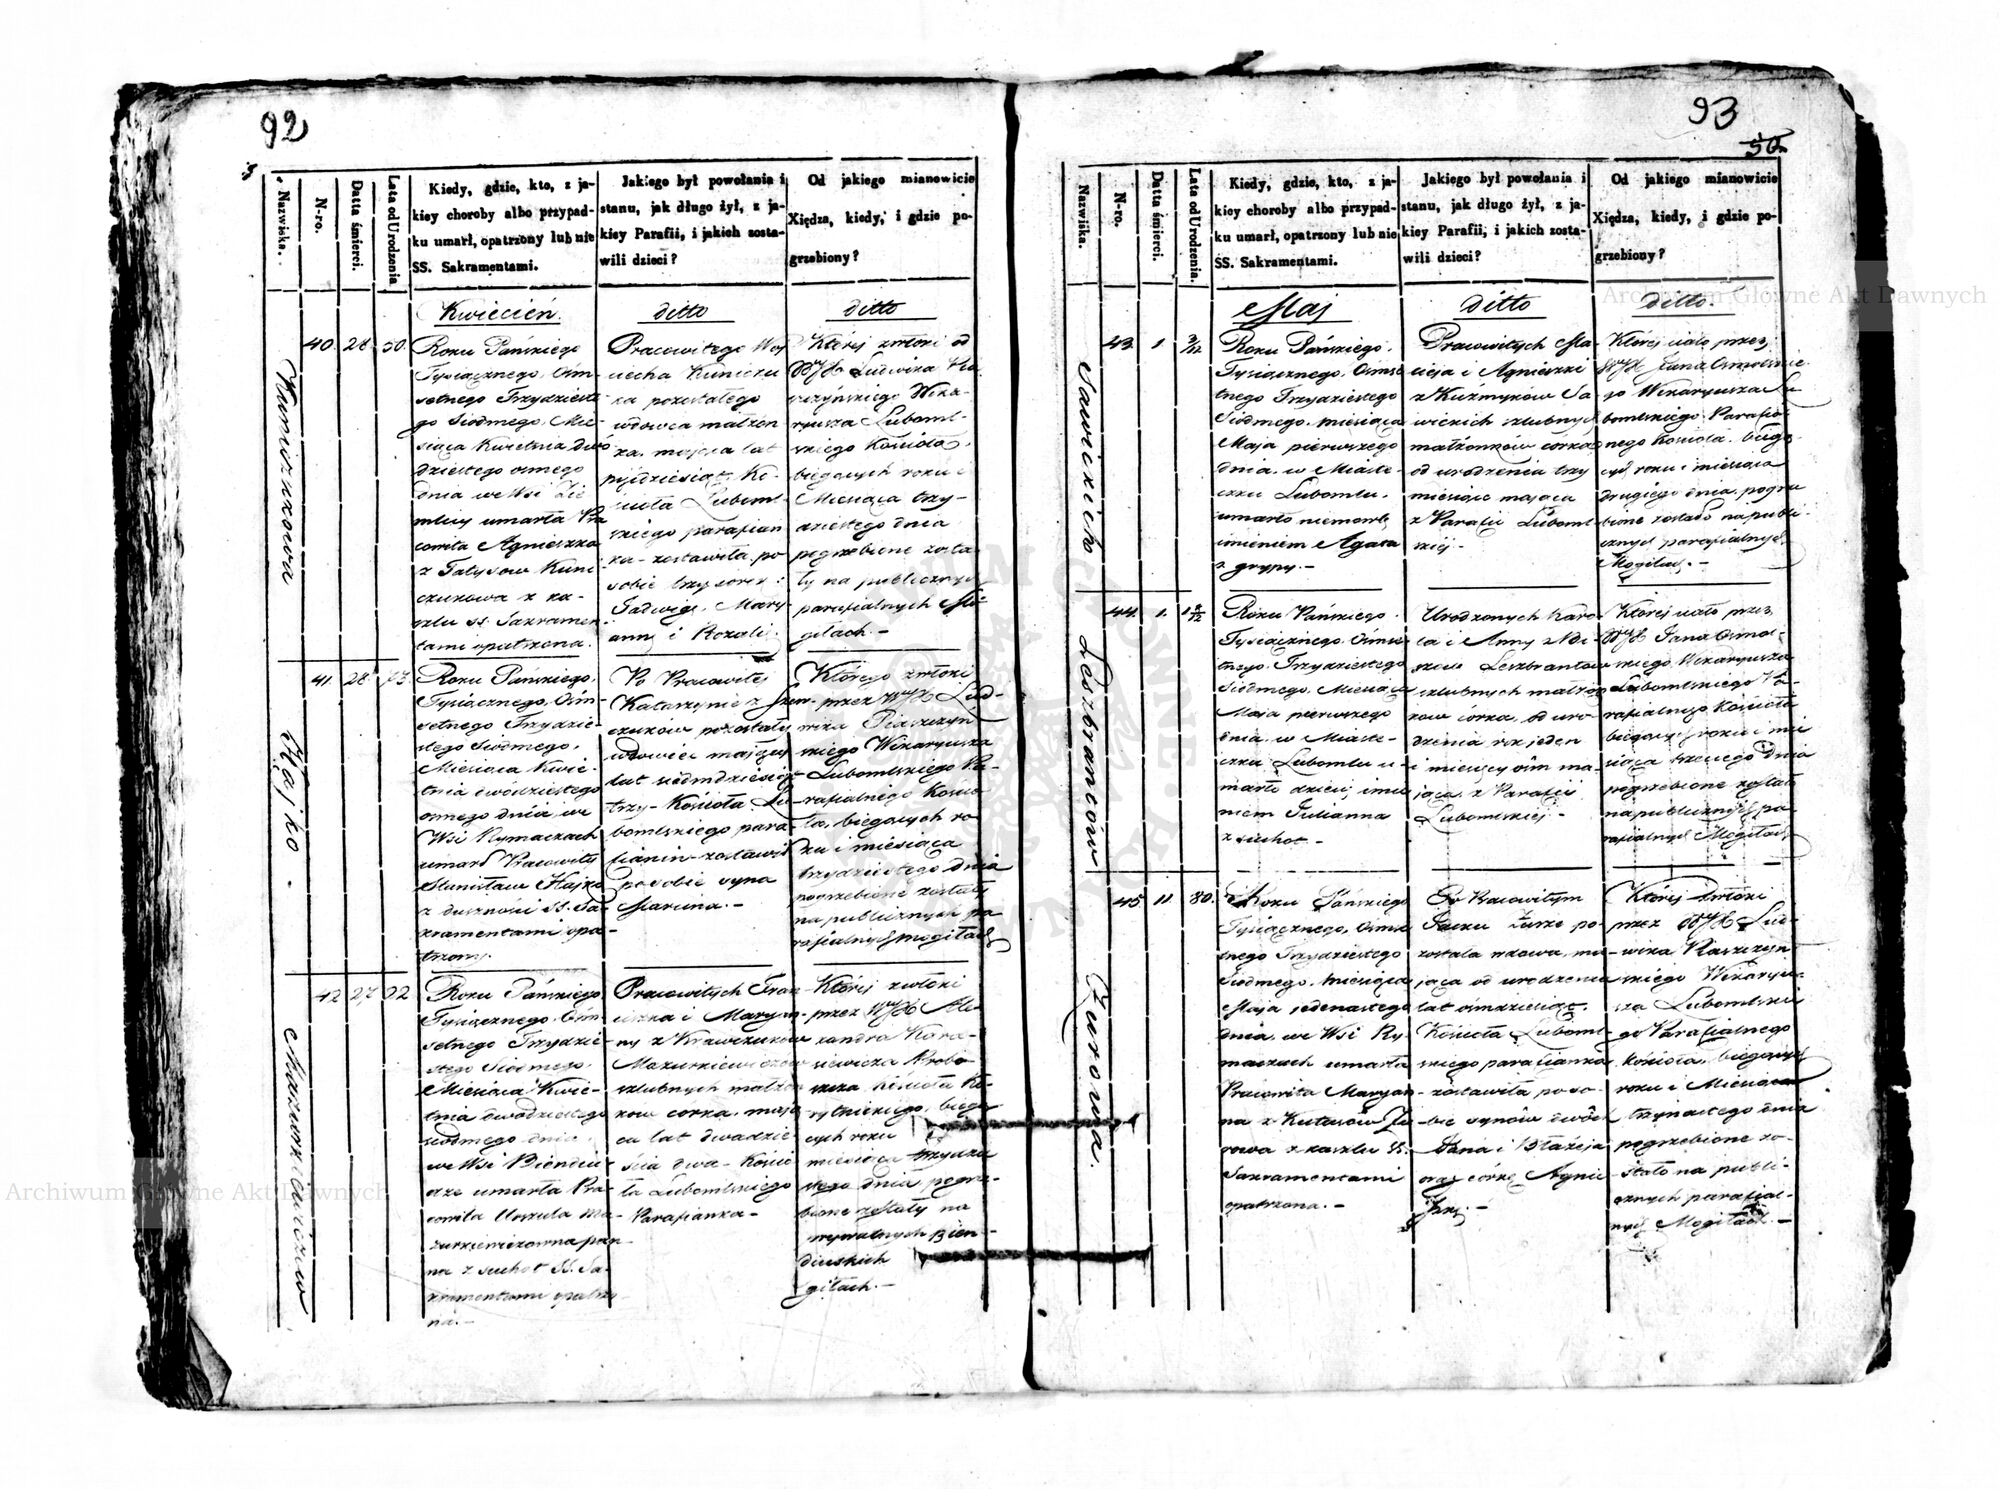 92
Nazwiska.
N-ro.
Datta śmierci.
Lata od Urodzenia
Kiedy, gdzie, kto, z ja-
kiey choroby albo przypad-
ku umarł, opatrzony lub nie
SS. Sakramentami.
Jakiego był powołania i
stanu, jak długo żył, z ja-
kiey Parafii, i jakich zosta-
wili dzieci?
Od jakiego mianowicie
Xiędza, kiedy, i gdzie po-
grzebiony?
Kwiecień.
ditto
ditto
40. 28. 50.
Roku Pańskiego
Tysiącznego, Ośm-
setnego Trzydziest
go Siodmego, Mie-
siąca Kwietnia dwó
dziestego osmego
dnia we Wsi
umarła Pra
cowita Agnieszka
z Kuni
czukowa z ka-
szlu SS. Sakramen
tami opatrzona.
Pracowitego Woj
ciecha Kuniczu
ka pozostałego
wdowca małżon
ka, mająca lat
pięćdziesiąt, Ko-
ścioła Luboml-
skiego parafian
ka - zostawiła po
sobie trzy corek:
Jadwigę, Mary-
annę i Rozalię.
Której zwłoki od
WJX Ludwika Pia-
szczyńskiego Wika-
ryusza Luboml-
skiego Kościoła,
bieżących roku i
Miesiąca trzy-
dziestego dnia
pogrzebione zosta
ły na publicznych
parafialnych Mo
giłach. -
41. 28. 73.
Hajko.
Roku Pańskiego,
Tysiącznego, Ośm-
setnego Trzydzie-
stego Siodmego,
Miesiąca Kwie-
tnia dwodziestego
osmego dnia, we
Wsi Rymaczach
umarł Pracowity
Stanisław Hajko
z duszności SS. Sa-
kramentami opa-
trzony.
Po Pracowitej
Katarzynie z Szew-
czuków pozostały
wdowiec mający
lat siedmdziesiąt
trzy - Kościoła Lu-
bomlskiego para-
fianin - zostawił
po sobie syna
Marcina. -
Którego zwłoki
przez WJX Lud-
wika Piaszczyń
skiego Wikaryusza
Lubomlskiego Pa-
rafialnego Kościo
ła, bieżących ro-
ku i miesiąca
trzydziestego dnia
pogrzebione zostały
na publicznych pa
rafialnych Mogiłach
42. 27. 22
Mazurkiewiczow
Roku Pańskiego
Tysiącznego, Ośm-
setnego Trzydzie-
stego Siodmego,
Miesiąca Kwie-
tnia dwadziestego
siodmego dnia,
we Wsi Bienduu
dze umarła Pra-
cowita Urszula Ma-
zurkiewiczowna pan
na z suchot SS. Sa-
kramentami opatrzo-
na. -
Pracowitych Fran
ciszka i Maryan-
ny z Krawczuków
Mazurkiewiczów
szlubnych małżon
kow corka, mają
ca lat dwadzie-
ścia dwa - Kościo
ła Lubomlskiego
Parafianka -
Której zwłoki
przez WJX Ale-
xandra Kara-
siewicza
szcza Kościoła Ko-
rytnickiego, bieżą
cych roku
miesiąca trzydzie
stego dnia pogrze-
bione zostały na
Bien-
diuskich
giłach. -
93
50
Nazwiska.
N-ro.
Datta śmierci.
Lata od Urodzenia.
Kiedy, gdzie, kto, z ja-
kiey choroby albo przypad-
ku umarł, opatrzony lub nie
SS. Sakramentami.
Jakiego był powołania i
stanu, jak długo żył, z ja-
kiey Parafii, i jakich zosta-
wili dzieci?
Od jakiego mianowicie
Xiędza, kiedy, i gdzie po-
grzebiony?
Maj
ditto
ditto.
43. 1. 3/12
Sawickich
Roku Pańskiego,
Tysiącznego, Ośmse
tnego Trzydziestego
Siodmego, miesiąca
Maja pierwszego
dnia, w Miaste-
czku Lubomlu,
umarło niemowlę
imieniem Agata
z grypy. -
Pracowitych Ma-
cieja i Agnieszki
z Kuźmyków Sa-
wickich szlubnych
małżonków córka
od urodzenia trzy
miesiące mająca
z Parafii Luboml
skiéj. -
Któréj ciało przez
WJX Jana Osmolskie
go Wikaryusza Lu
bomlskiego Parafial
nego Kościoła, bieżą-
cych roku i miesiąca
drugiego dnia, pogrze
bione zostało na publi-
cznych parafialnych,
Mogiłach. -
44. 1. 1 8/12
Leszbrantów
Roku Pańskiego,
Tysiącznego, Ośmse
tnego, Trzydziestego
Siodmego, Miesiąca
Maja pierwszego
dnia, w Miaste-
czku Lubomlu u-
marło dziecię, imie
niem Julianna
z suchot -
Urodzonych Karo
la i Anny
Leszbrantów
szlubnych małżon
kow córka, od uro-
dzenia rok jeden
i miesięcy ośm ma-
jąca, z Parafii
Lubomlskiej -
Któréj ciało przez
WJX Jana Osmol-
skiego Wikaryusza
Lubomlskiego Pa-
rafialnego Kościoła
bieżących roku i mie
siąca trzeciego dnia
pogrzebione zostało
na publicznych pa
rafialnych Mogiłach
45 11 80.
Żurowa.
Roku Pańskiego
Tysiącznego, Ośmse
tnego Trzydziestego
Siodmego, miesiąca
Maja jedenastego
dnia, we Wsi Ry-
maczach umarła
Pracowita Maryan-
na z Kutasów Żu-
rowa z kaszlu SS.
Sakramentami
opatrzona. -
Po Pracowitym
Jacku Żurze po-
została wdowa, ma-
jąca od urodzenia
lat ośmdziesiąt,
Kościoła Luboml-
skiego parafianka
- zostawiła po so-
bie synów dwóch
Jana i Błażeja
oraz córkę Agnie-
szkę. -
Któréj zwłoki
przez WJX Lud-
wika Piaszczyń-
skiego Wikaryu-
sza Lubomlskie
go Parafialnego
Kościoła, bieżących
roku i Miesiąca
trzynastego dnia
pogrzebione zo-
stało na publi-
cznych parafial-
nych Mogiłach. -
Archiwum Główne Akt Dawnych
Archiwum Główne Akt Dawnych